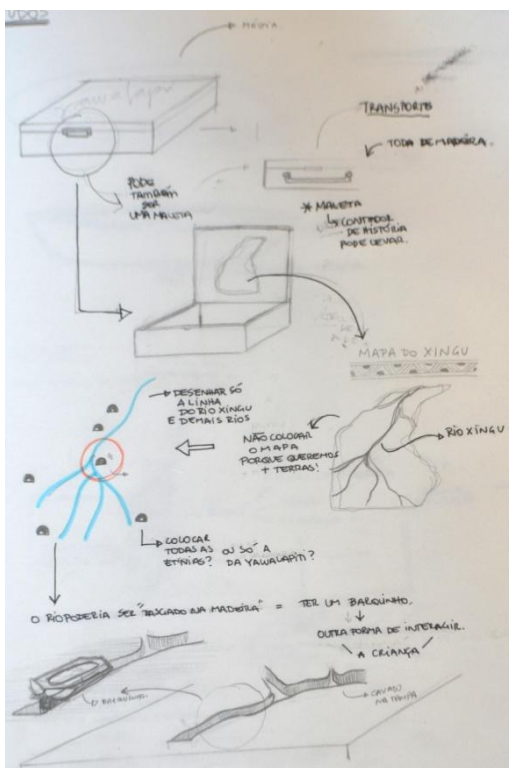 MÉDIA.
TRANSPORTE
TODA DE MADEIRA.
PODE
TAMBÉM
SER
UMA MALETA
* MALETA
CONTADOR
DE HISTÓRIA
PODE LEVAR.
MAPA DO XINGU
DESENHAR SÓ
A LINHA
DO RIO XINGU
E DEMAIS RIOS
NÃO COLOCAR
O MAPA
PORQUE QUEREMOS
+ TERRAS!
RIO XINGU
COLOCAR
TODAS AS OU SÓ A
ETNIAS? DA YAWALAPITI?
O RIO PODERIA SER "RASGADO NA MADEIRA" = TER UM BARQUINHO.
OUTRA FORMA DE INTERAGIR.
A CRIANÇA
O BARQUINHO
CAVADO
NA TAMPA